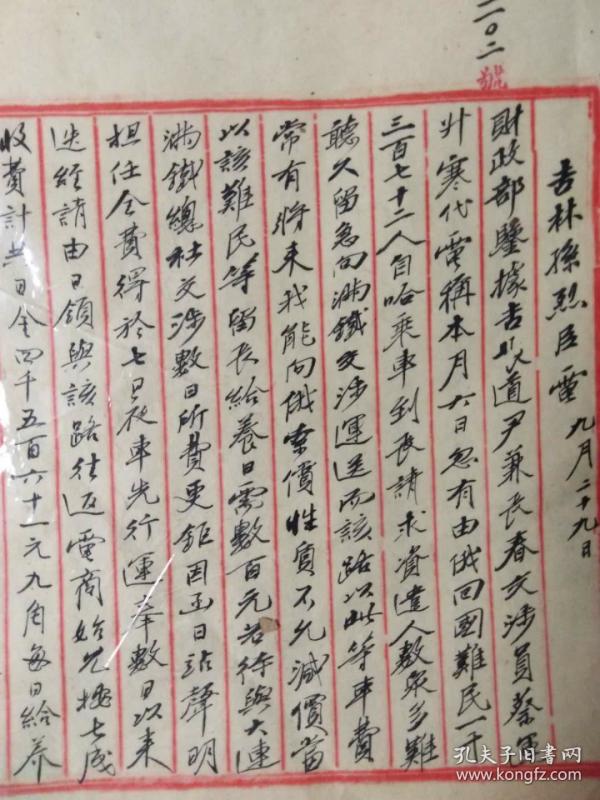 二〇二號
吉林孫烈臣電 九月二十九日
財政部鑒據吉長道尹兼長春交涉員蔡運
升寒代電稱本月六日忽有由俄回國難民一千
三百七十二人自哈乘車到長請求資遣人數衆多難
聽久留急向滿鐵交涉運送而該路以此等車費
常有將來我能向俄索價性質不允減價當
以該難民等留長給養日需數百元若待與大連
滿鐵總社交涉數日所費更鉅因函日站聲明
担任全費得於七日夜車先行運奉數日以來
迭經請由日領與該路往返電商始允按七成
收費計共日金四千五百六十一元九角每日給養
孔夫子旧書网
www.kongfz.com